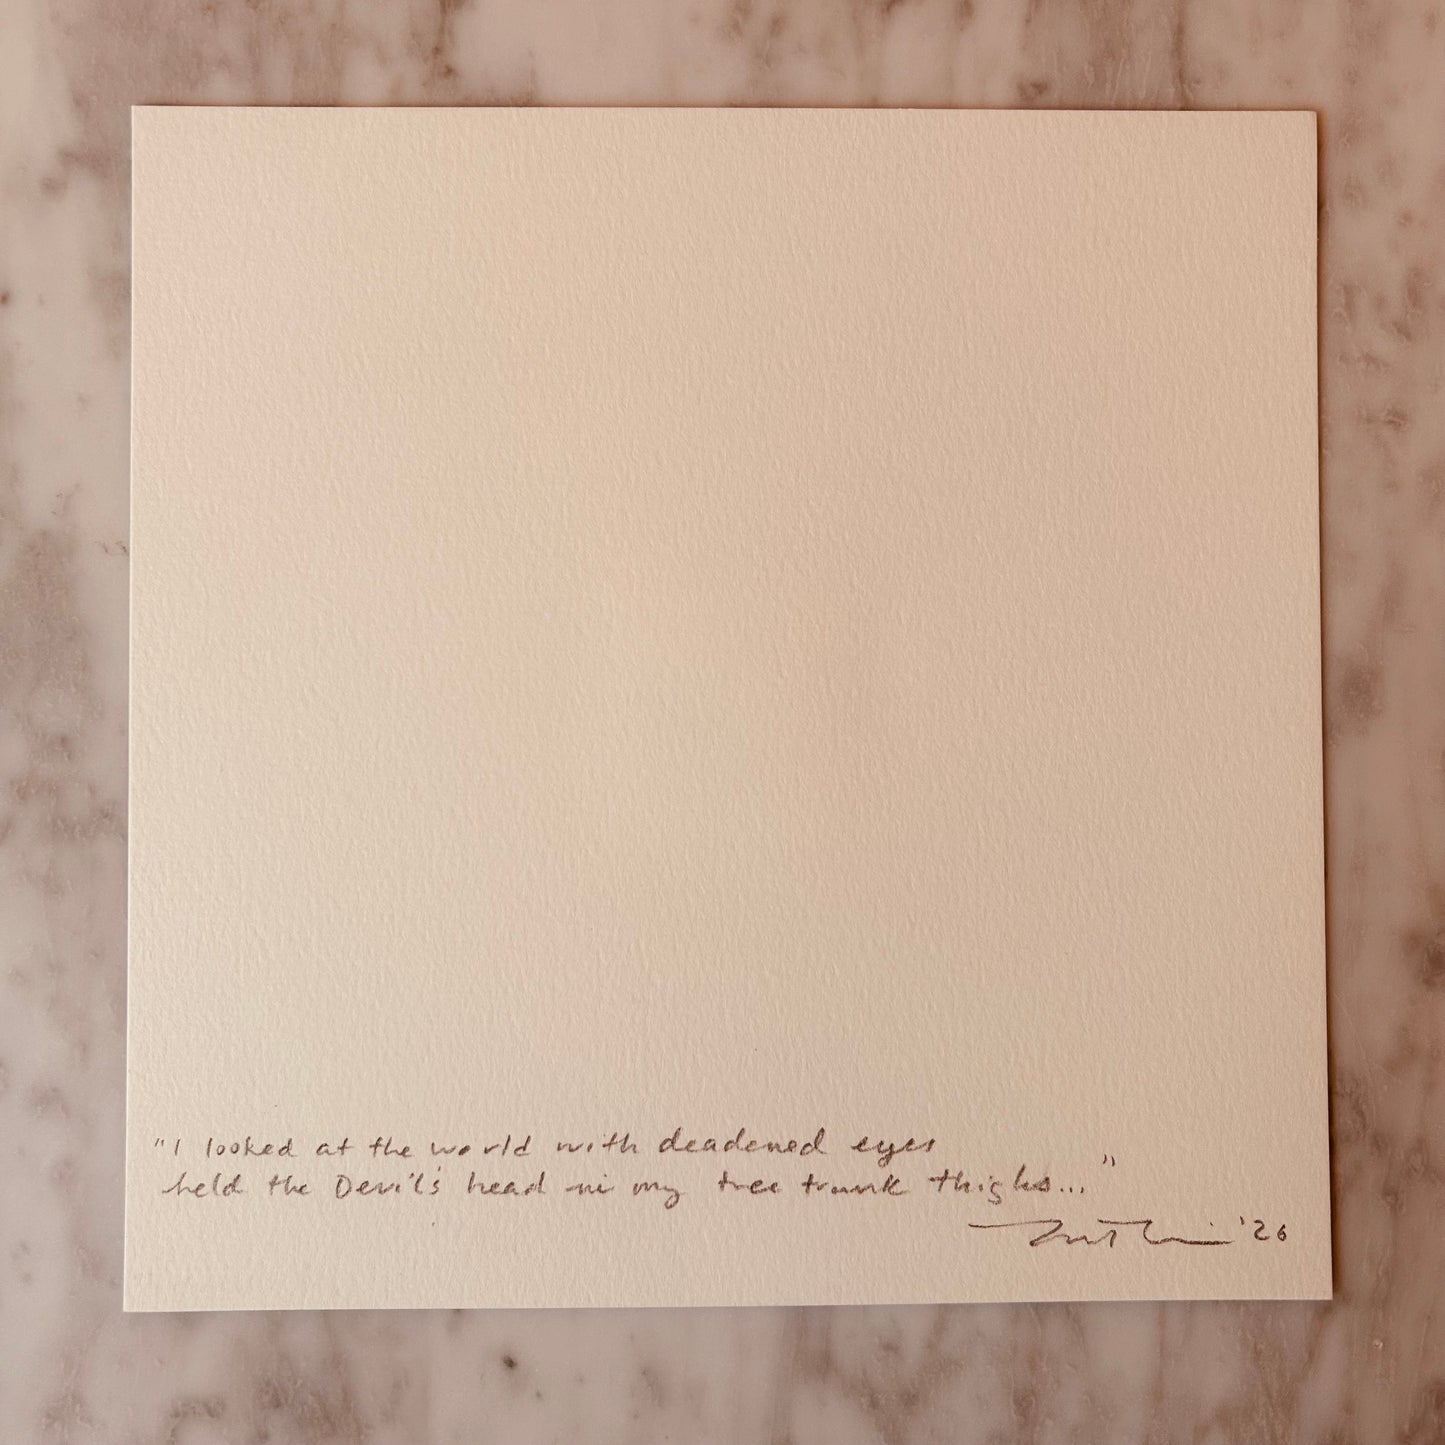 "I looked at the world with deadened eyes
held the Devil's head in my tree trunk thighs..."
'26